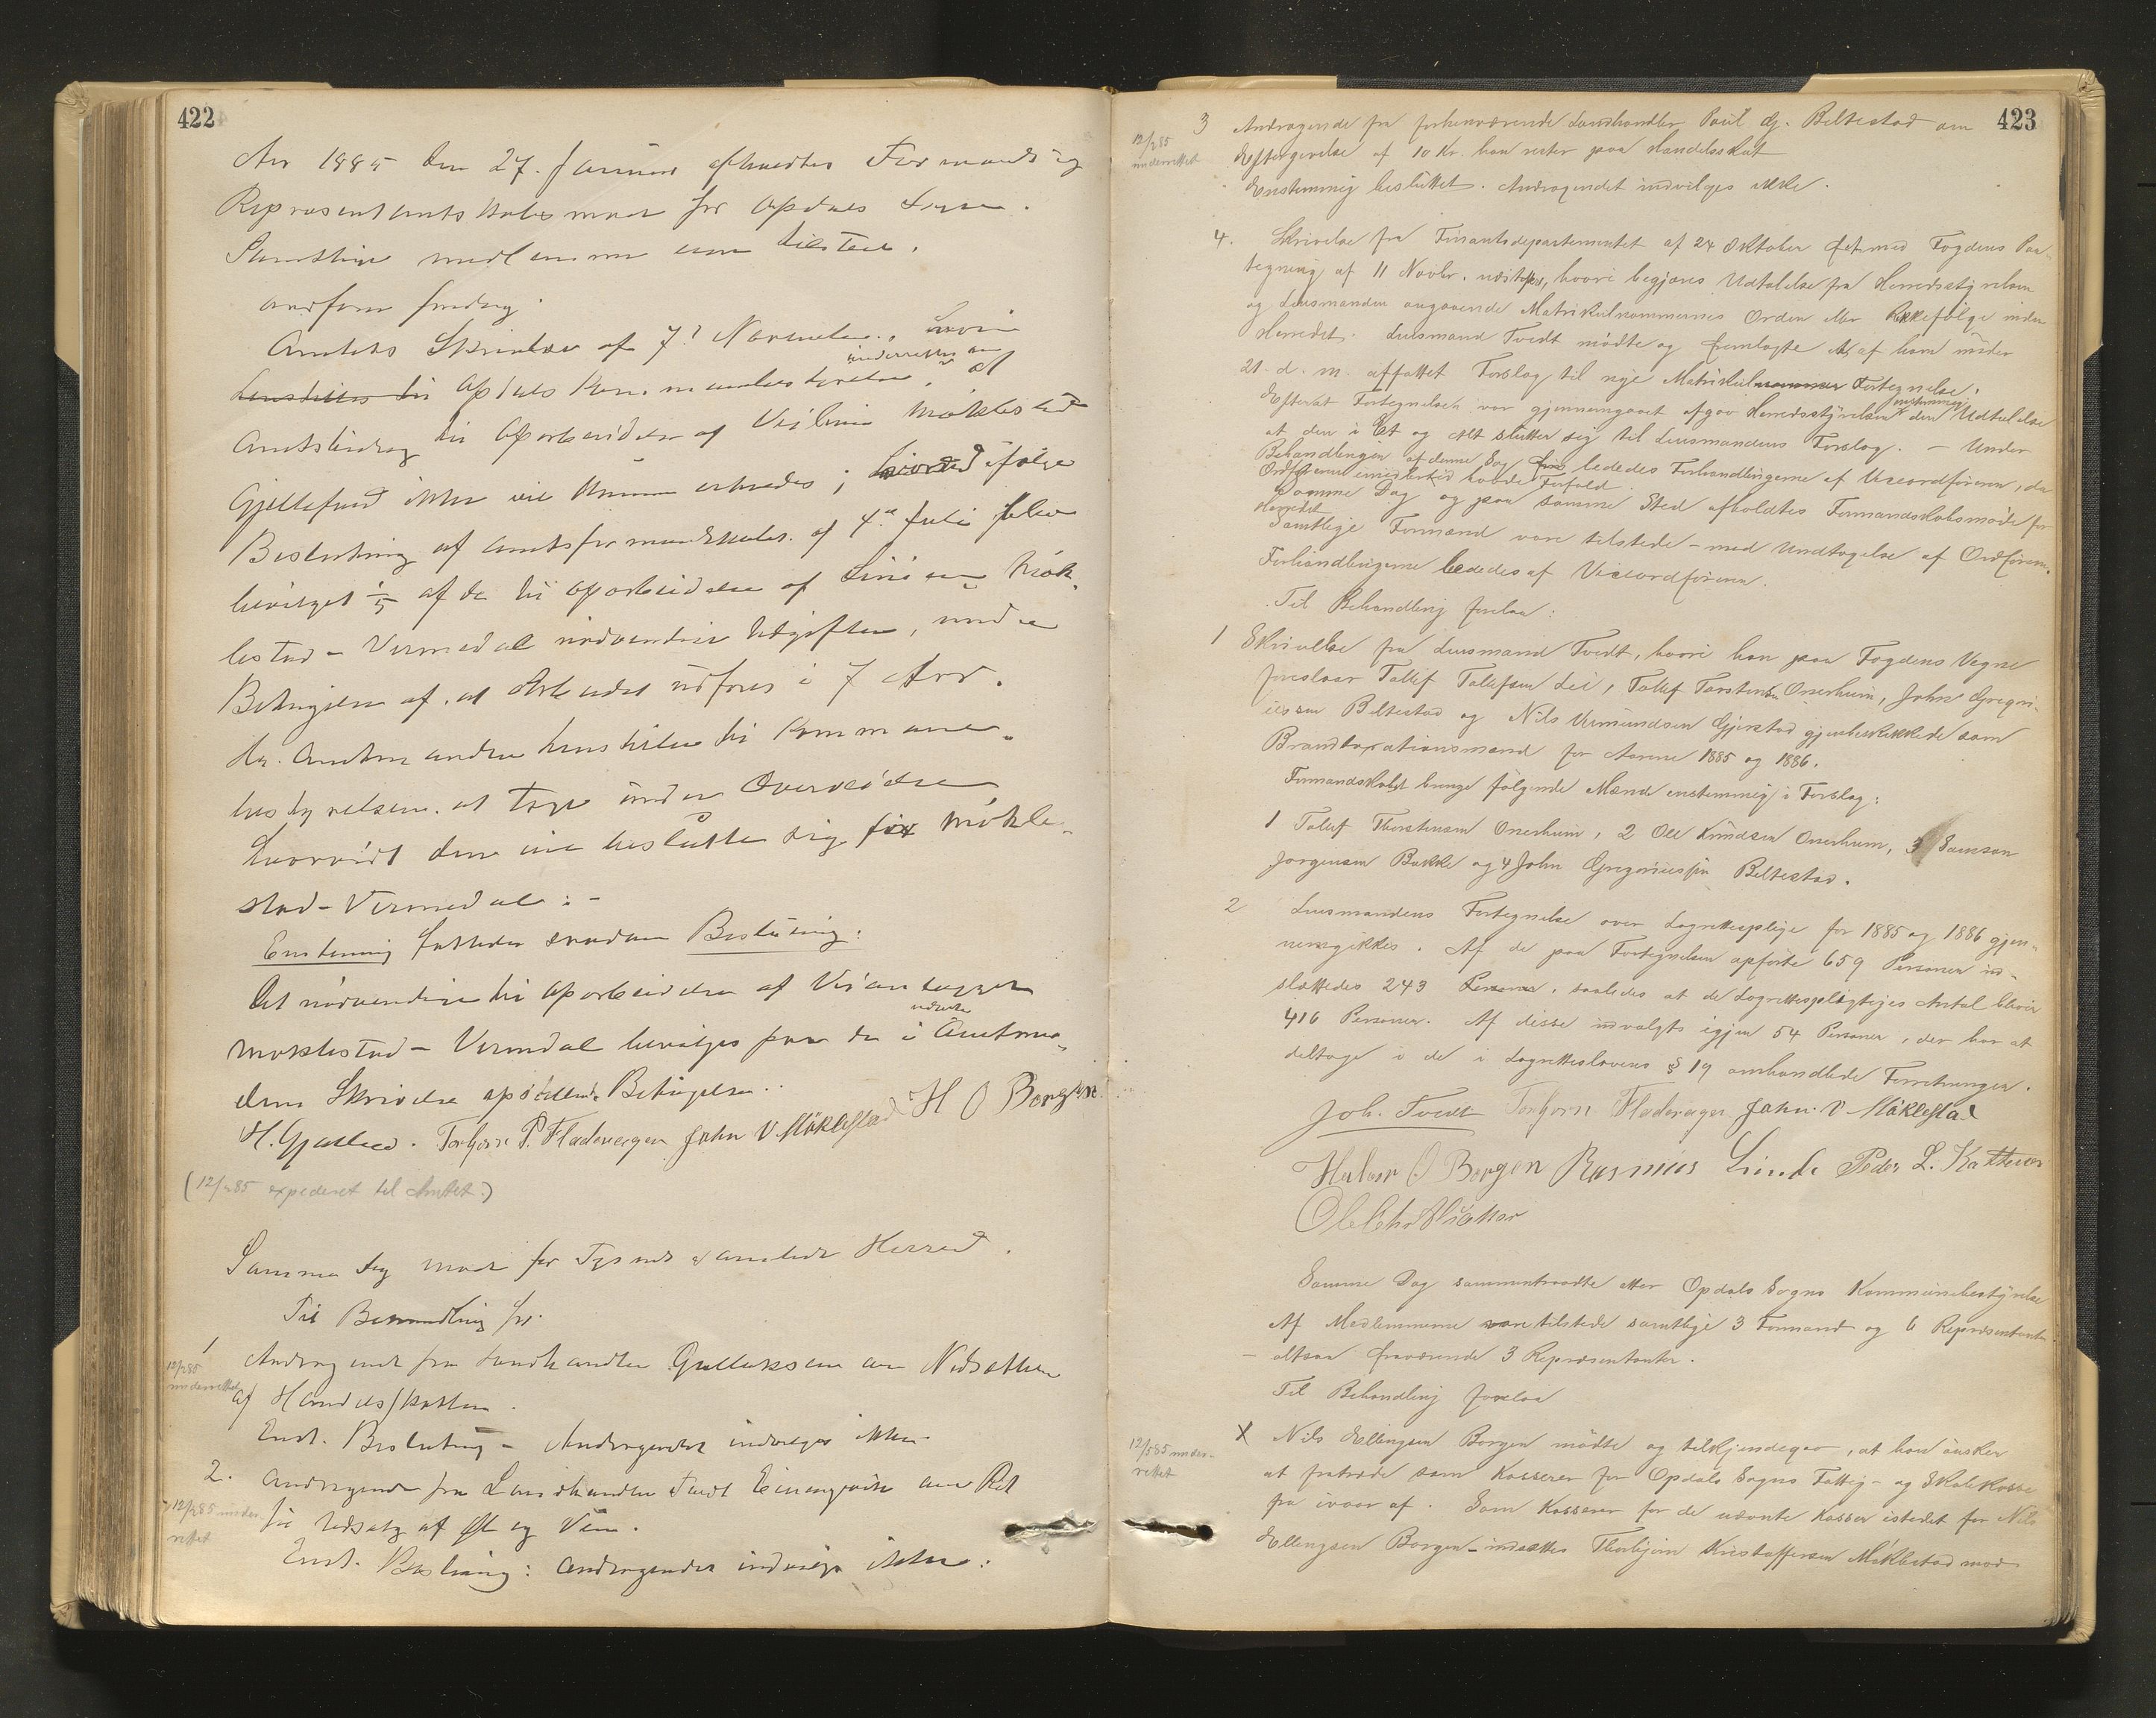 422
Aar 1885 den 27. Januar afholdtes Formands og
Repræsentantskabsmøde for Opdals Sogn.
Samtlige medlemmer vare tilstede.
Amtets Skrivelse af 7. November, hvori
henstilles til Opdals Kommunebestyrelse underrettes om at
Amtsbidrag til Oparbeidelse af Veilinie Møklestad
Gjellefald ikke vil kunne erholdes; hvorved ifølge
Beslutning af Amtsformandskabet af 4de Juli blev
bevilget 1/5 af de til Oparbeidelse af Linien Møk-
lestad - Vermedal nødvendige Udgifter, under
Betingelse af, at Arbeidet udføres i 7 Aar.
Hr. Amtmanden henstiller til Kommune-
bestyrelsen at tage under Overveielse
hvorvidt den vil beslutte sig for Møkle-
stad - Vermedal: -
Enstemmig fattedes saadan Beslutning:
Det nødvendige til Oparbeidelse af Veianlægget
Møklestad - Vermdal bevilges paa de i Amtman-
dens Skrivelse opstillede Betingelser.
H. Gjellud. Torbjørn P. Fladeragen John V Møklestad H O Borgen
(12/2 85 expederet til Amtet.)
Samme Dag møde for Tysnes samlede Herred.
Til Behandling for:
1 Andragende fra Landhandler Gulluksen om Nedsættelse
12/2 85 underrettet
af Handelsskatten.
Enst. Beslutning - Andragendet indvilges ikke
2. Andragende fra Landhandler Tvedt Einingevik om Ret
12/2 85 under-
rettet
til Udsalg af Øl og Vin.
Enst. Beslutning: Andragendet indvilges ikke:
423
3 Andragende fra forhenværende Landhandler Poul Gj. Beltestad om
12/2 85
underrettet
Eftergivelse af 10 Kr. han rester paa Handelsskat
Enstemmig besluttet. Andragendet indvilges ikke.
4. Skrivelse fra Finantsdepartementet af 24 Oktober f. A. med Fogdens Paa-
tegning af 11 Novbr. næstefter, hvori begjæres Udtalelse fra Herredsstyrelsen
og Lensmanden angaaende Matrikulnummernes Orden eller Rækkefølge inden
Herredet. Lensmand Tvedt mødte og fremlagte et af ham under
21. d. m. affattet Forslag til nye Matrikul Fortegnelse.
Efterat Fortegnelsen var gjennemgaaet afgav Herredsstyrelsen enstemmig den Udtalelse
at den i Et og Alt slutter sig til Lensmandens Forslag. - Under
Behandlingen af denne Sag lededes Forhandlingerne af Viceordføreren, da
Ordføreren imidlertid havde Forfald.
Samme Dag og paa samme Sted afholdtes Formandskabsmøde for
Herredet
Samtlige Formænd vare tilstede - med Undtagelse af Ordføreren.
Forhandlingerne lededes af Viceordføreren.
Til Behandling forelaa:
1 Skrivelse fra Lensmand Tvedt, hvori han paa Fogdens Vegne
foreslaar Tollef Tollefsen Lei, Tollef Torstensen Onerheim, John Gregori-
ussen Beltestad og Nils Vermundsen Gjerstad gjenbeskikkede som
Brandtaxationsmænd for Aarene 1885 og 1886.
Formandskabet bringe følgende Mænd enstemmig i Forslag:
1 Tollef Thorstensen Onerheim, 2 Ole Knudsen Onerheim, 3 Samson
Jørgensen Bakke og 4 John Gregoriussen Beltestad.
2 Lensmandens Fortegnelse over Lagrettespligtige for 1885 og 1886 gjen-
nemgikkes. Af de paa Fortegnelsen opførte 659 Personer ud-
slettedes 243 Personer, saaledes at de Lagrettespligtiges Antal bliver
416 Personer. Af disse udvalgtes igjen 54 Personer, der har at
deltage i de i Lagretteslovens § 19 omhandlede Forretninger.
Joh. Tvedt Torbjørn Fladeragen John V Møklestad
Halvor O Borgen Rasmus Lunde Peder L. Katterås
Samme Dag sammentraadte atter Opdals Sogns Kommunebestyrelse
Af Medlemmerne vare tilstede samtlige 3 Formænd og 6 Repræsentanter
- altsaa fraværende 3 Repræsentanter.
Til Behandling forelaa
X Nils Ellingsen Borgen mødte og tilkjendegav, at han ønsker
12/5 85 under-
rettet
at fratræde som Kasserer for Opdals Sogns Fattig- og Skolekasse
fra ivaar af. Som Kasserer for de nævnte Kasser istedet for Nils
Ellingsen Borgen indsættes Thorbjørn Kristoffersen Møklestad mod